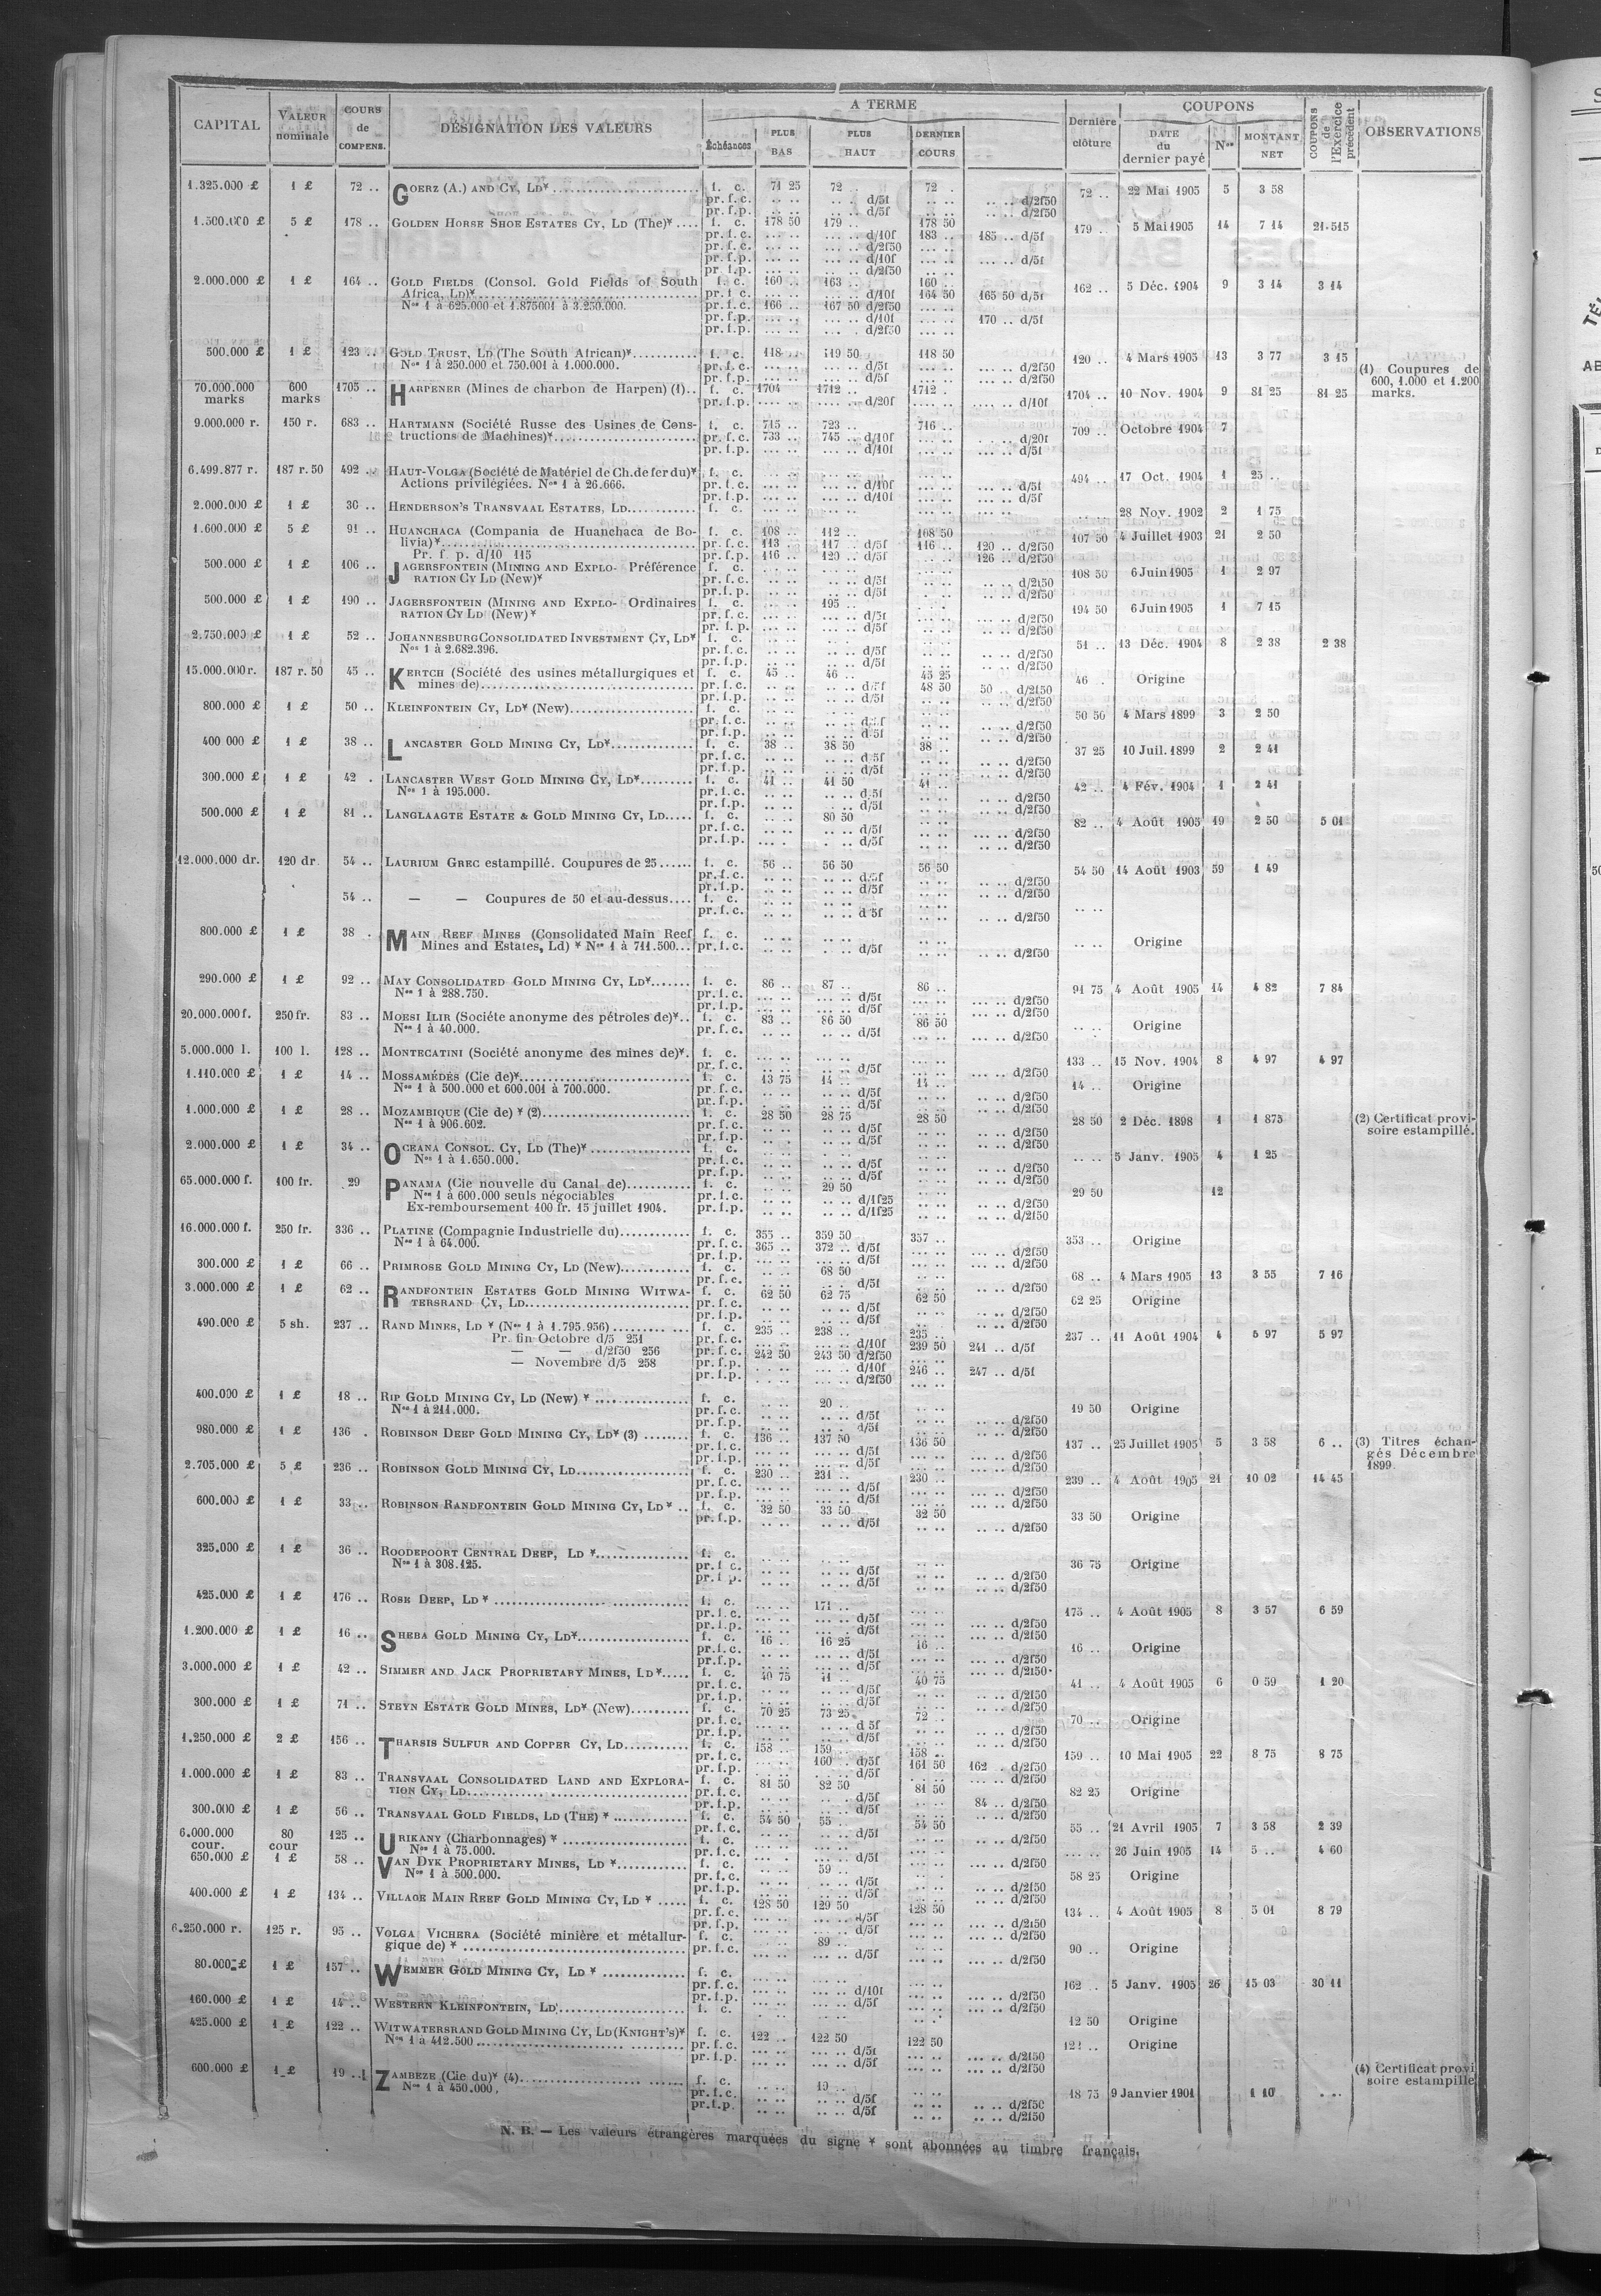 CAPITAL | VALEUR nominale | COURS de COMPENS. | DÉSIGNATION DES VALEURS | A TERME | Dernière clôture | COUPONS | COUPONS de l'Exercice précédent | OBSERVATIONS
Échéances | PLUS BAS | PLUS HAUT | DERNIER COURS | DATE du dernier payé | Nos | MONTANT NET
1.325.000 £ 1 £ 72 .. GOERZ (A.) AND CY, LD* f. c. 71 25 72 .. 72 . 72 .. 22 Mai 1905 5 3 58
pr. f. c. .. .. .. .. d/5f .. .. .. .. d/2f50
pr. f. p. .. .. .. .. d/5f .. .. .. .. d/2f50
1.500.000 £ 5 £ 178 .. GOLDEN HORSE SHOE ESTATES CY, LD (The)* f. c. 178 50 179 .. 178 50 179 .. 5 Mai 1905 14 7 14 21.515
pr. f. c. ... .. ... .. d/10f 183 .. 185 .. d/5f
pr. f. c. ... .. ... .. d/2f50 ... ..
pr. f. p. ... .. ... .. d/10f ... .. ... .. d/5f
pr. f. p. ... .. ... .. d/2f50
2.000.000 £ 1 £ 164 .. GOLD FIELDS (Consol. Gold Fields of South f. c. 160 .. 163 .. 160 .. 162 .. 5 Déc. 1904 9 3 14 3 14
Africa, Ld)* pr. f. c. ... .. ... .. d/10f 164 50 165 50 d/5f
Nos 1 à 625.000 et 1.875001 à 3.250.000. pr. f. c. 166 .. 167 50 d/2f50
pr. f. p. ... .. ... .. d/10f ... .. 170 .. d/5f
pr. f. p. ... .. ... .. d/2f50
500.000 £ 1 £ 123 .. GOLD TRUST, LD (The South African)* f. c. 118 .. 119 50 118 50 120 .. 4 Mars 1905 13 3 77 3 15
Nos 1 à 250.000 et 750.001 à 1.000.000. pr. f. c. ... .. ... .. d/5f ... .. d/2f50
pr. f. p. ... .. ... .. d/5f ... .. d/2f50
70.000.000 marks 600 marks 1705 .. HARPENER (Mines de charbon de Harpen) (1).. f. c. 1704 1712 .. 1712 . 1704 .. 10 Nov. 1904 9 81 25 81 25 (1) Coupures de 600, 1.000 et 1.200 marks.
pr. f. p. .... .. .... .. d/20f .... .. d/10f
9.000.000 r. 150 r. 683 .. HARTMANN (Société Russe des Usines de Cons- f. c. 715 .. 723 .. 716 .. 709 .. Octobre 1904 7
tructions de Machines)* pr. f. c. 733 .. 745 .. d/10f d/20f
pr. f. p. ... .. ... .. d/10f ... .. d/5f
6.499.877 r. 187 r. 50 492 .. HAUT-VOLGA (Société de Matériel de Ch. de fer du)* f. c. 494 .. 17 Oct. 1904 1 25 ..
Actions privilégiées. Nos 1 à 26.666. pr. f. c. ... .. d/10f ... .. d/5f
pr. f. p. ... .. d/10f ... .. d/5f
2.000.000 £ 1 £ 36 .. HENDERSON'S TRANSVAAL ESTATES, LD f. c. 28 Nov. 1902 2 1 75
1.600.000 £ 5 £ 91 .. HUANCHACA (Compania de Huanchaca de Bo- f. c. 108 .. 112 .. 108 50 107 50 4 Juillet 1903 21 2 50
livia)* pr. f. c. 113 .. 117 .. d/5f 116 .. 120 .. d/2f50
Pr. f p. d/10 115 pr. f. p. 116 .. 120 .. d/5f 126 .. d/2f50
500.000 £ 1 £ 106 .. JAGERSFONTEIN (MINING AND EXPLO- Préférence f. c. 108 50 6 Juin 1905 1 2 97
RATION CY LD (New)* pr. f. c. d/5f d/2f50
pr. f. p. d/5f d/2f50
500.000 £ 1 £ 190 .. JAGERSFONTEIN (MINING AND EXPLO- Ordinaires f. c. 195 .. 194 50 6 Juin 1905 1 7 15
RATION CY LD (New)* pr. f. c. d/5f d/2f50
pr. f. p. d/5f d/2f50
2.750.000 £ 1 £ 52 .. JOHANNESBURG CONSOLIDATED INVESTMENT CY, LD* f. c. 51 .. 13 Déc. 1904 8 2 38 2 38
Nos 1 à 2.682.396. pr. f. c. d/5f d/2f50
pr. f. p. d/5f d/2f50
15.000.000 r. 187 r. 50 45 .. KERTCH (Société des usines métallurgiques et f. c. 45 .. 46 .. 45 25 46 . Origine
mines de) pr. f. c. d/5f 48 50 50 .. d/2f50
pr. f. p. d/5f d/2f50
800.000 £ 1 £ 50 .. KLEINFONTEIN CY, LD* (New) f. c. 50 50 4 Mars 1899 3 2 50
pr. f. c. d/5f d/2f50
pr. f. p. d/5f d/2f50
400 000 £ 1 £ 38 .. LANCASTER GOLD MINING CY, LD* f. c. 38 .. 38 50 38 .. 37 25 10 Juil. 1899 2 2 41
pr. f. c. d/5f d/2f50
pr. f. p. d/5f d/2f50
300.000 £ 1 £ 42 . LANCASTER WEST GOLD MINING CY, LD* f. c. 41 .. 41 50 41 .. 42 .. 4 Fév. 1904 1 2 41
Nos 1 à 195.000. pr. f. c. d/5f d/2f50
pr. f. p. d/5f d/2f50
500.000 £ 1 £ 81 .. LANGLAAGTE ESTATE & GOLD MINING CY, LD f. c. 80 50 82 .. 4 Août 1905 19 2 50 5 01
pr. f. c. d/5f d/2f50
pr. f. p. d/5f d/2f50
12.000.000 dr. 120 dr 54 .. LAURIUM GREC estampillé. Coupures de 25 f. c. 56 .. 56 50 56 50 54 50 14 Août 1903 59 1 49
pr. f. c. d/5f d/2f50
pr. f. p. d/5f d/2f50
54 .. — — Coupures de 50 et au-dessus f. c. .. ..
pr. f. c. d 5f d/2f50
800.000 £ 1 £ 38 . MAIN REEF MINES (Consolidated Main Reef f. c. .. .. Origine
Mines and Estates, Ld) * Nos 1 à 711.500... pr. f. c. d/5f d/2f50
290.000 £ 1 £ 92 .. MAY CONSOLIDATED GOLD MINING CY, LD* f. c. 86 .. 87 .. 86 .. 91 75 4 Août 1905 14 4 82 7 84
Nos 1 à 288.750. pr. f. c. d/5f d/2f50
pr. f. p. d/5f d/2f50
20.000.000 f. 250 fr. 83 .. MOESI ILIR (Société anonyme des pétroles de)*.. f. c. 83 .. 86 50 86 50 .. .. Origine
Nos 1 à 40.000. pr. f. c. d/5f d/2f50
5.000.000 l. 100 l. 128 .. MONTECATINI (Société anonyme des mines de)*. f. c. 133 .. 15 Nov. 1904 8 4 97 4 97
pr. f. c. d/5f d/2f50
1.110.000 £ 1 £ 14 .. MOSSAMÉDÈS (Cie de)* f. c. 13 75 14 .. 14 .. 14 .. Origine
Nos 1 à 500.000 et 600.001 à 700.000. pr. f. c. d/5f d/2f50
pr. f. p. d/5f d/2f50
1.000.000 £ 1 £ 28 .. MOZAMBIQUE (Cie de) * (2) f. c. 28 50 28 75 28 50 28 50 2 Déc. 1898 1 1 875 (2) Certificat provi-soire estampillé.
Nos 1 à 906.602. pr. f. c. d/5f d/2f50
pr. f. p. d/5f d/2f50
2.000.000 £ 1 £ 34 .. OCEANA CONSOL. CY, LD (The)* f. c. .. .. 5 Janv. 1905 4 1 25
Nos 1 à 1.650.000. pr. f. c. d/5f d/2f50
pr. f. p. d/5f d/2f50
65.000.000 f. 100 fr. 29 PANAMA (Cie nouvelle du Canal de) f. c. 29 50 29 50 12
Nos 1 à 600.000 seuls négociables pr. f. c. d/1f25 d/2f50
Ex-remboursement 100 fr. 15 juillet 1904. pr. f. p. d/1f25 d/2f50
16.000.000 f. 250 fr. 336 .. PLATINE (Compagnie Industrielle du) f. c. 355 .. 359 50 357 .. 353 .. Origine
Nos 1 à 64.000. pr. f. c. 365 .. 372 .. d/5f d/2f50
pr. f. p. d/5f d/2f50
300.000 £ 1 £ 66 .. PRIMROSE GOLD MINING CY, LD (New) f. c. 68 50 68 .. 4 Mars 1905 13 3 55 7 16
pr. f. c. d/5f d/2f50
3.000.000 £ 1 £ 62 .. RANDFONTEIN ESTATES GOLD MINING WITWA- f. c. 62 50 62 75 62 50 62 25 Origine
TERSRAND CY, LD pr. f. c. d/5f d/2f50
pr. f. p. d/5f d/2f50
490.000 £ 5 sh. 237 .. RAND MINES, LD * (Nos 1 à 1.795.956) f. c. 235 .. 238 .. 235 .. 237 .. 11 Août 1904 4 5 97 5 97
Pr. fin Octobre d/5 251 pr. f. c. d/10f 239 50 241 .. d/5f
— — d/2f50 256 pr. f. c. 242 50 243 50 d/2f50
— Novembre d/5 258 pr. f. p. d/10f 246 .. 247 .. d/5f
pr. f. p. d/2f50
400.000 £ 1 £ 18 .. RIP GOLD MINING CY, LD (New) * f. c. 20 .. 19 50 Origine
Nos 1 à 211.000. pr. f. c. d/5f d/2f50
pr. f. p. d/5f d/2f50
980.000 £ 1 £ 136 . ROBINSON DEEP GOLD MINING CY, LD* (3) f. c. 136 .. 137 50 136 50 137 .. 25 Juillet 1905 5 3 58 6 .. (3) Titres échan-gés Décembre 1899.
pr. f. c. d/5f d/2f50
pr. f. p. d/5f d/2f50
2.705.000 £ 5 £ 236 .. ROBINSON GOLD MINING CY, LD f. c. 230 .. 231 .. 230 .. 239 .. 4 Août 1905 21 10 02 14 45
pr. f. c. d/5f d/2f50
pr. f. p. d/5f d/2f50
600.000 £ 1 £ 33 .. ROBINSON RANDFONTEIN GOLD MINING CY, LD* .. f. c. 32 50 33 50 32 50 33 50 Origine
pr. f. p. d/5f d/2f50
325.000 £ 1 £ 36 .. ROODEPOORT CENTRAL DEEP, LD * f. c. 36 75 Origine
Nos 1 à 308.125. pr. f. c. d/5f d/2f50
pr. f. p. d/5f d/2f50
425.000 £ 1 £ 176 .. ROSE DEEP, LD * f. c. 171 .. 175 .. 4 Août 1905 8 3 57 6 59
pr. f. c. d/5f d/2f50
pr. f. p. d/5f d/2f50
1.200.000 £ 1 £ 16 .. SHEBA GOLD MINING CY, LD* f. c. 16 .. 16 25 16 .. 16 .. Origine
pr. f. c. d/5f d/2f50
pr. f. p. d/5f d/2f50
3.000.000 £ 1 £ 42 .. SIMMER AND JACK PROPRIETARY MINES, LD* f. c. 40 75 41 .. 40 75 41 .. 4 Août 1905 6 0 59 1 20
pr. f. c. d/5f d/2f50
pr. f. p. d/5f d/2f50
300.000 £ 1 £ 71 .. STEYN ESTATE GOLD MINES, LD* (New) f. c. 70 25 73 25 72 .. 70 .. Origine
pr. f. c. d 5f d/2f50
pr. f. p. d/5f d/2f50
1.250.000 £ 2 £ 156 .. THARSIS SULFUR AND COPPER CY, LD f. c. 158 .. 159 .. 158 .. 159 .. 10 Mai 1905 22 8 75 8 75
pr. f. c. 160 .. d/5f 161 50 162 . d/2f50
pr. f. p. d/5f d/2f50
1.000.000 £ 1 £ 83 .. TRANSVAAL CONSOLIDATED LAND AND EXPLORA- f. c. 81 50 82 50 81 50 82 25 Origine
TION CY, LD pr. f. c. d/5f 84 .. d/2f50
pr. f. p. d/5f d/2f50
300.000 £ 1 £ 56 .. TRANSVAAL GOLD FIELDS, LD (THE) * f. c. 54 50 55 .. 54 50 55 .. 21 Avril 1905 7 3 58 2 39
pr. f. c. d/5f d/2f50
6.000.000 cour. 80 cour 125 .. URIKANY (Charbonnages) * f. c. 26 Juin 1905 14 5 .. 4 60
Nos 1 à 75.000. pr. f. c. d/5f d/2f50
650.000 £ 1 £ 58 .. VAN DYK PROPRIETARY MINES, LD * f. c. 59 .. 58 25 Origine
Nos 1 à 500.000. pr. f. c. d/5f d/2f50
pr. f. p. d/5f d/2f50
400.000 £ 1 £ 134 .. VILLAGE MAIN REEF GOLD MINING CY, LD * f. c. 128 50 129 50 128 50 134 .. 4 Août 1905 8 5 01 8 79
pr. f. c. d/5f d/2f50
pr. f. p. d/5f d/2f50
6.250.000 r. 125 r. 95 .. VOLGA VICHERA (Société minière et métallur- f. c. 89 .. 90 .. Origine
gique de) * pr. f. c. d/5f d/2f50
80.000 £ 1 £ 157 .. WEMMER GOLD MINING CY, LD * f. c. 162 .. 5 Janv. 1905 26 15 03 30 11
pr. f. c. d/10f d/2f50
pr. f. p. d/5f d/2f50
160.000 £ 1 £ 14 .. WESTERN KLEINFONTEIN, LD f. c. 12 50 Origine
425.000 £ 1 £ 122 .. WITWATERSRAND GOLD MINING CY, LD (KNIGHT'S)* f. c. 122 .. 122 50 122 50 Origine
Nos 1 à 412.500 pr. f. c. d/5f d/2f50
pr. f. p. d/5f d/2f50
600.000 £ 1 £ 19 .. ZAMBEZE (Cie du)* (4) f. c. 19 .. 18 75 9 Janvier 1901 1 10 (4) Certificat provi soire estampillé
Nos 1 à 450.000. pr. f. c. d/5f d/2f50
pr. f. p. d/5f d/2f50
N. B. — Les valeurs étrangères marquées du signe * sont abonnées au timbre français.